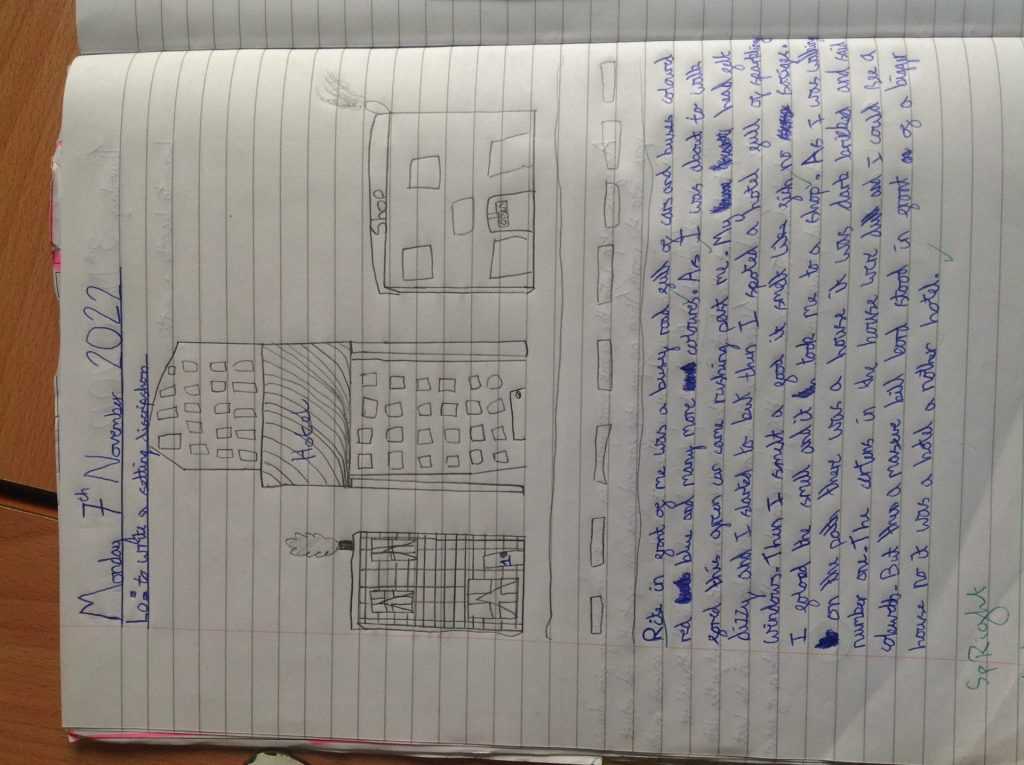 Monday 7th November 2022
Lo: to write a setting discription
Shop
Hotel
Rite in froont of me was a busy road fulls of cars and buses coloured
red blue and many more colours. As I was about to walk
forword this green car came rushing past me. My head felt
dizzy and I started to but then I spoted a hotel full of sparkling
windows. Then I smelt a good it smelt like fish no sosages.
I folowd the smell and it took me to a shop. As I was walking
on the path there was a house it was dark bricked and said
number one. The certens in the house were and I could see a
colourds. But then a masive bill bord stood in froont of a bigger
house no it was a hotel a nother hotel.
Sp Right